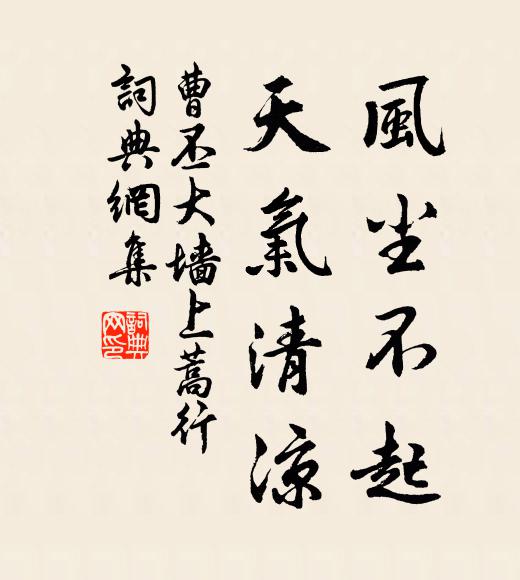 風尘不起
天氣清涼
曹丕大墙上蒿行
詞典網集
詞典
网印